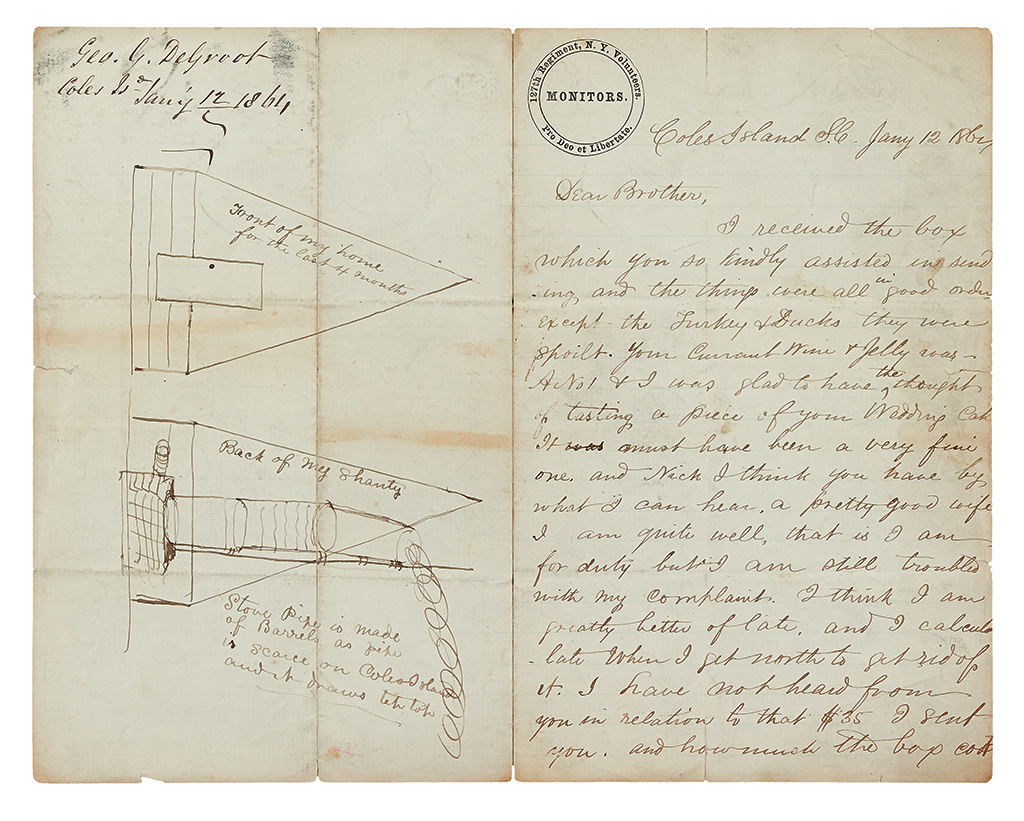 Geo. G. DeGroot
Coles Is.d Jan'y 12 1864
Front of my home
for the last 4 months
Back of my Shanty
Stove pipe is made
of Barrels as pipe
is scarce on Coles Island
and it draws tip top
127th Regiment, N. Y. Volunteers.
MONITORS.
Pro Deo et Libertate.
Coles Island S.C. Jany 12 1864
Dear Brother,
I received the box
which you so kindly assisted in send
-ing and the things were all in good order
except the Turkey & Ducks they were
spoilt. Your Currant Wine & Jelly was -
A No 1 & I was glad to have the thought
of tasting a piece of your Wedding Cak
It was must have been a very fine
one. and Nick I think you have by
what I can hear, a pretty good wife
I am quite well, that is I am
for duty but I am still troubled
with my complaint. I think I am
greatly better of late, and I calcu
-late when I get north to get rid of
it. I have not heard from
you in relation to that $35 I sent
you. and how much the box cost